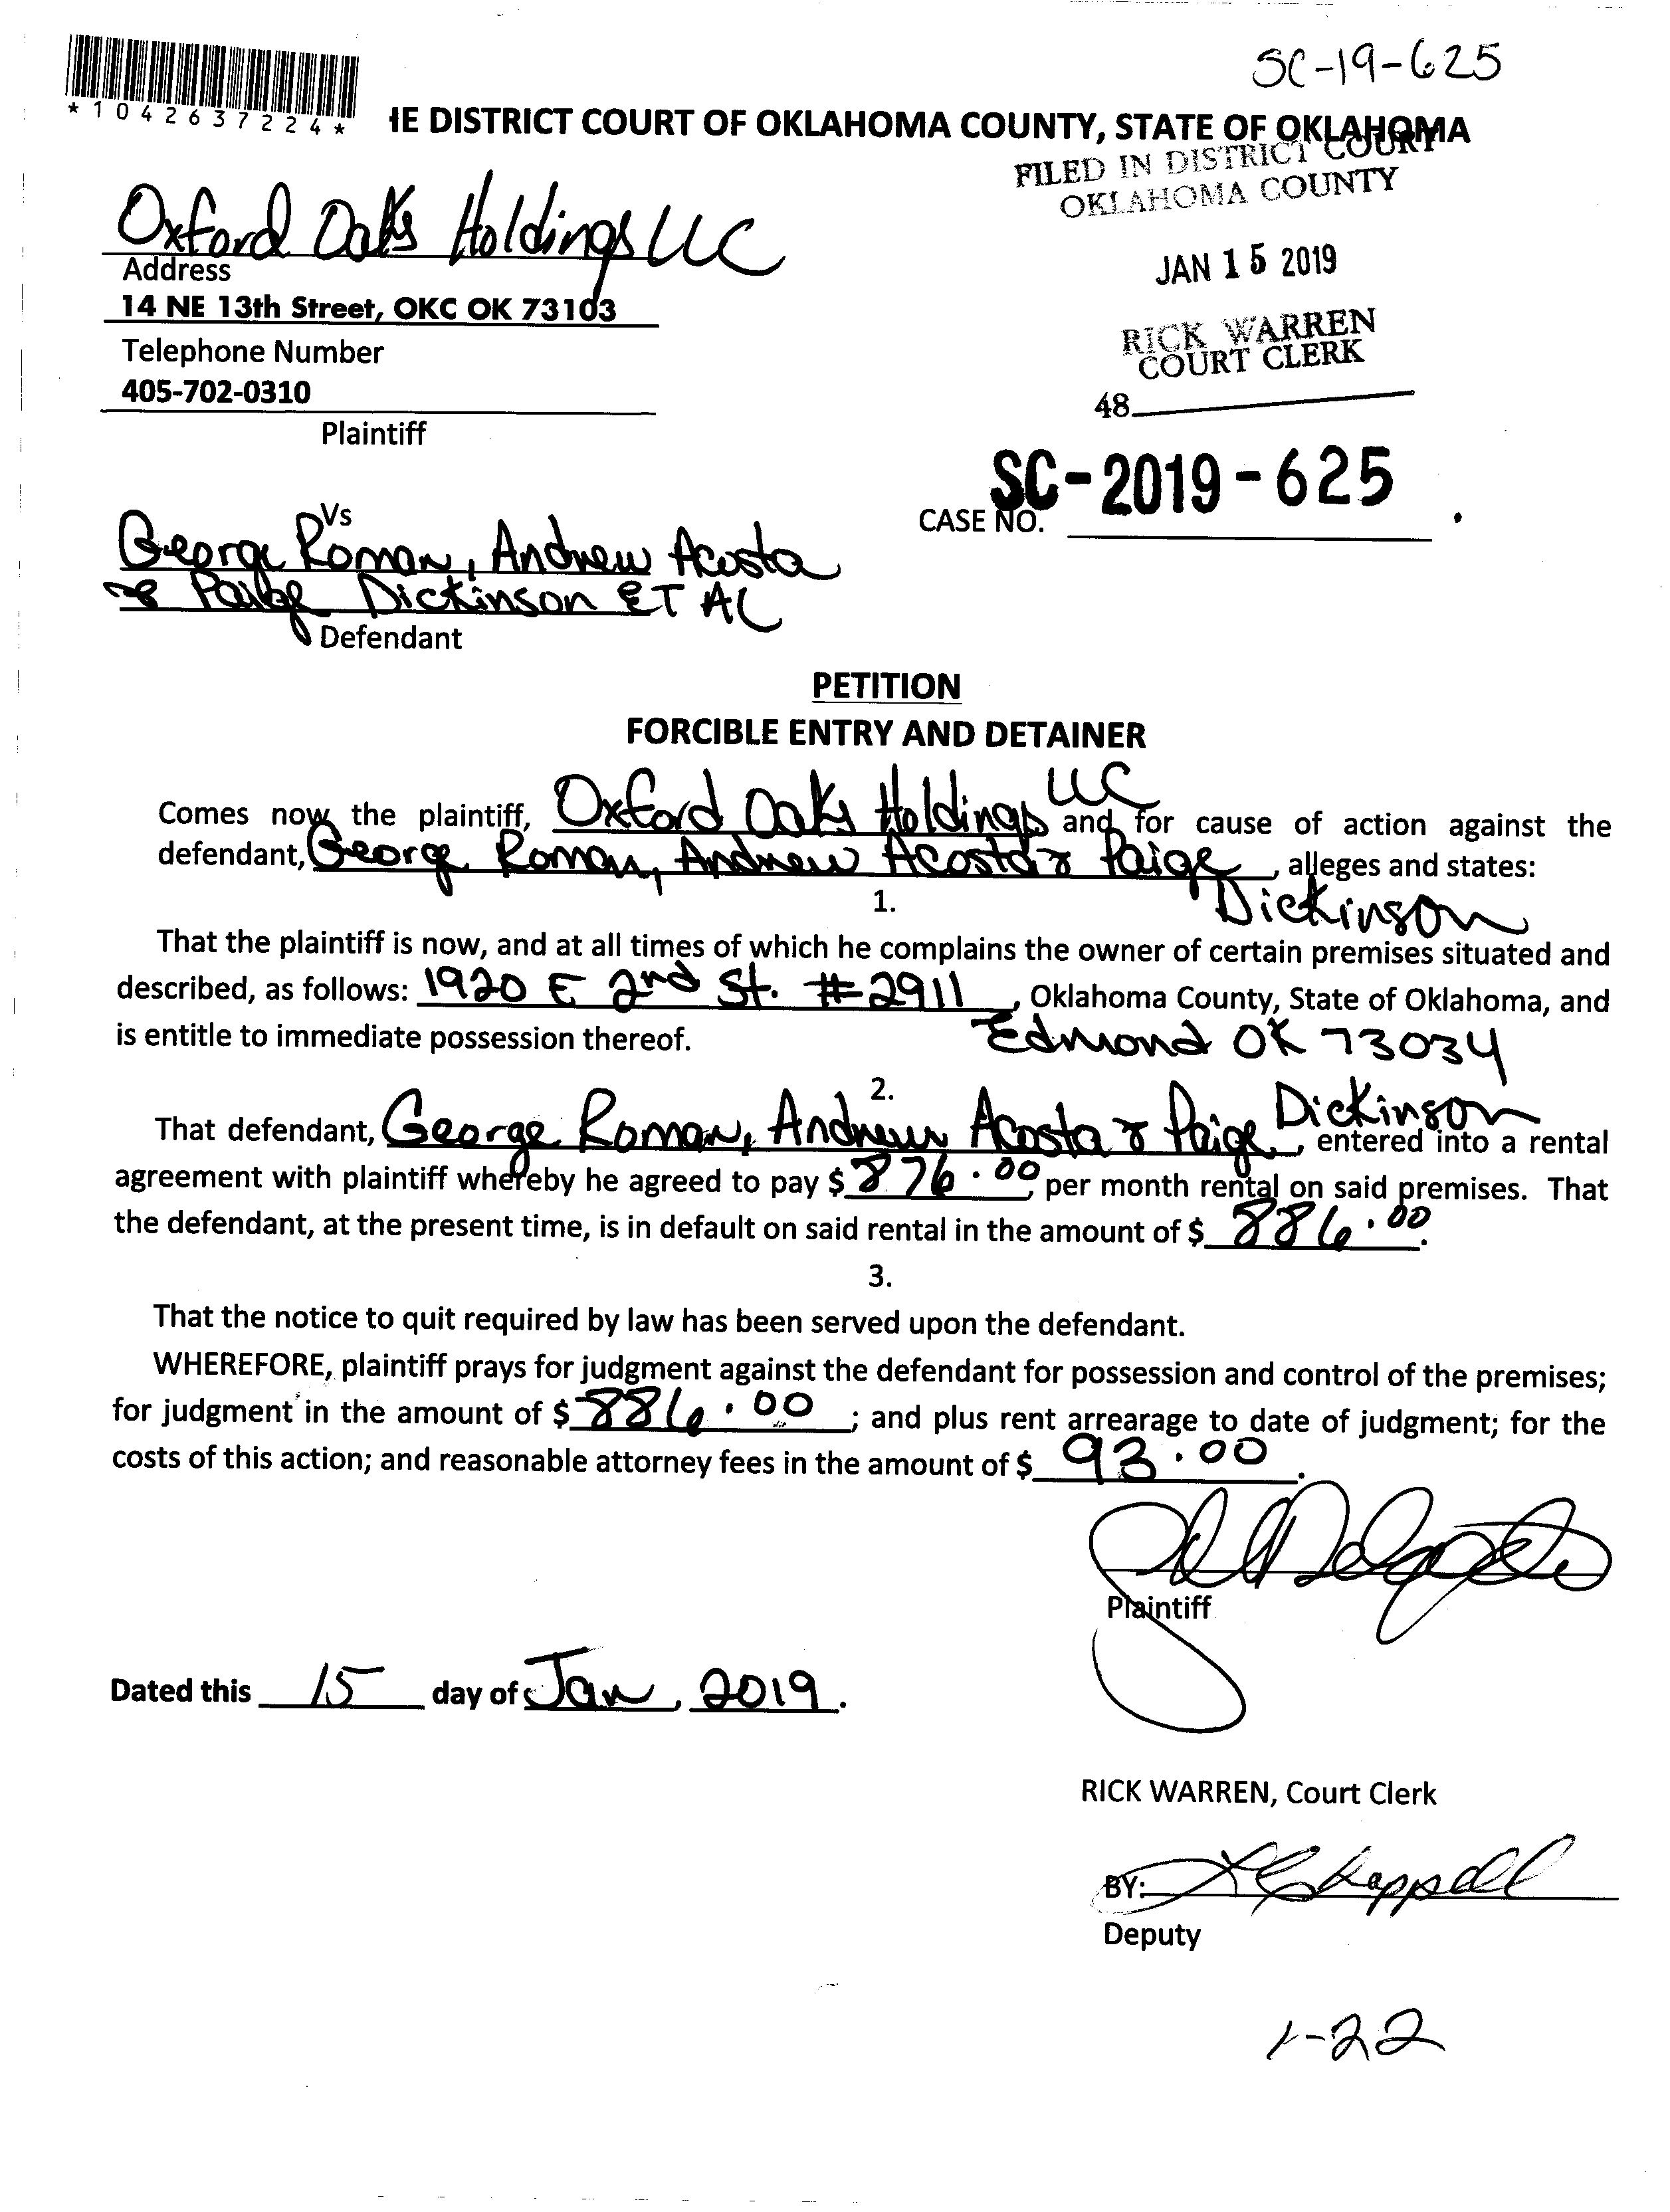 SC-19-625
*1042637224*
IE DISTRICT COURT OF OKLAHOMA COUNTY, STATE OF OKLAHOMA
FILED IN DISTRICT COURT
OKLAHOMA COUNTY
Oxford Oaks Holdings LLC
Address
14 NE 13th Street, OKC OK 73103
JAN 15 2019
Telephone Number
405-702-0310
RICK WARREN
COURT CLERK
48
Plaintiff
SC-2019-625
CASE NO.
Vs
George Roman, Andrew Acosta
& Paige Dickinson ET AL
Defendant
PETITION
FORCIBLE ENTRY AND DETAINER
Comes now the plaintiff, Oxford Oaks Holdings LLC and for cause of action against the
defendant, George Roman, Andrew Acosta & Paige Dickinson, alleges and states:
1.
That the plaintiff is now, and at all times of which he complains the owner of certain premises situated and
described, as follows: 1920 E 2nd St. #2911, Oklahoma County, State of Oklahoma, and
is entitle to immediate possession thereof. Edmond OK 73034
2.
That defendant, George Roman, Andrew Acosta & Paige Dickinson, entered into a rental
agreement with plaintiff whereby he agreed to pay $ 876.00, per month rental on said premises. That
the defendant, at the present time, is in default on said rental in the amount of $ 886.00.
3.
That the notice to quit required by law has been served upon the defendant.
WHEREFORE, plaintiff prays for judgment against the defendant for possession and control of the premises;
for judgment in the amount of $ 886.00 ; and plus rent arrearage to date of judgment; for the
costs of this action; and reasonable attorney fees in the amount of $ 93.00.
Plaintiff
Dated this 15 day of Jan, 2019.
RICK WARREN, Court Clerk
BY:
Deputy
1-22